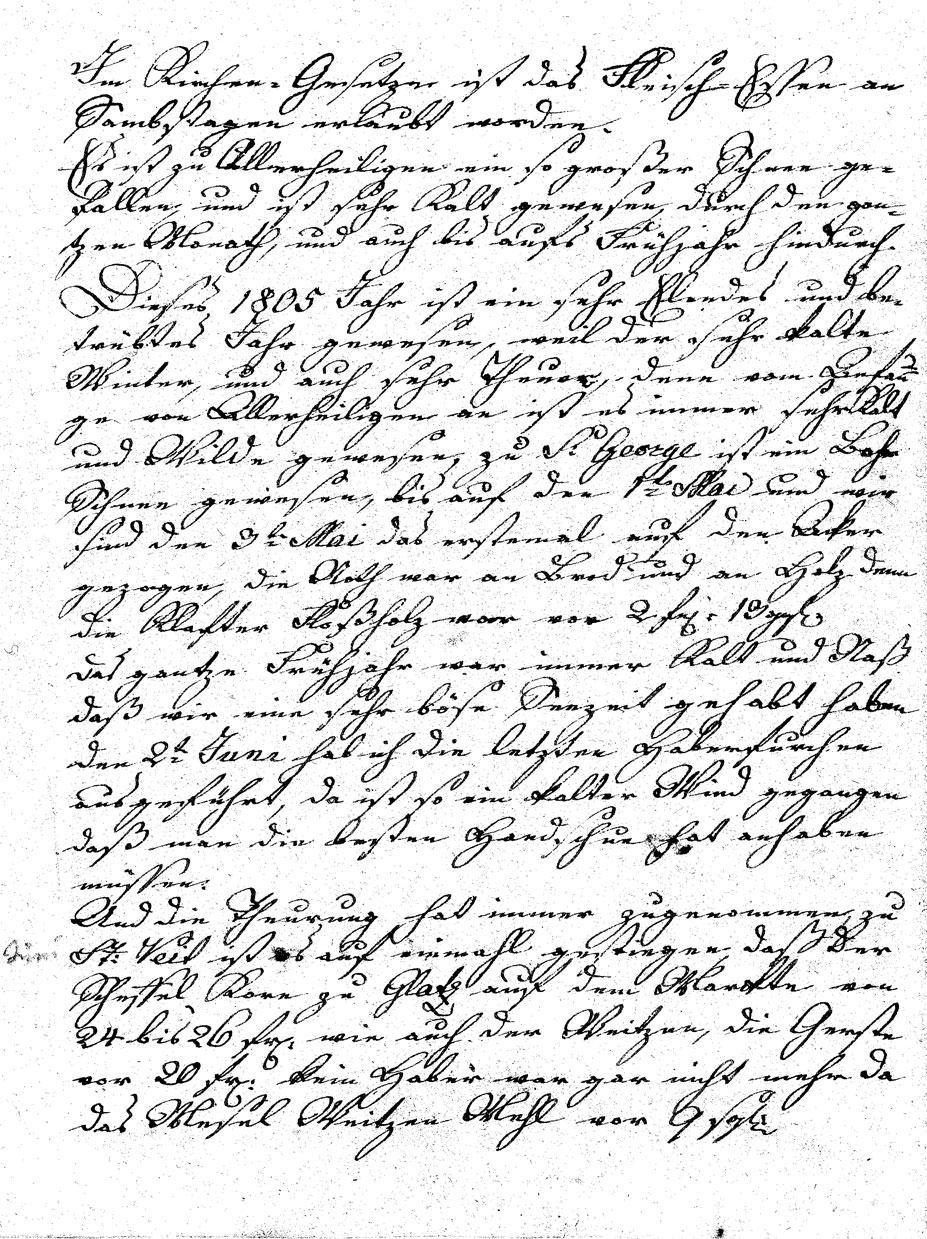 Im Kirchen-Gesetze ist das Fleisch-Essen an
Sambstagen erlaubt worden.
Es ist zu Allerheiligen ein so großer Schnee ge-
fallen, und ist sehr Kalt gewesen, durch den gan-
tzen Monath, und auch bis aufs Frühjahr hindurch.
Dieses 1805 Jahr ist ein sehr Elendes und be-
trübtes Jahr gewesen, weil der sehr kalte
Winter, und auch sehr Theuer, denn vom Anfan-
ge von Allerheiligen an ist es immer sehr Kalt
und Wilde gewesen, zu St George ist ein
Schnee gewesen, bis auf den 1te Mai und wir
sind den 3te Mai das erstemal auf den Acker
gezogen, die Noth war an Brod und an Holz denn
die Klafter Floßholz war vor 2
das gantze Frühjahr war immer Kalt und Naß
daß wir eine sehr böse Seezeit gehabt haben
den 2t Juni hab ich die letzten Haberfurchen
ausgeführt, da ist so ein kalter Wind gegangen
daß man die besten Handschue hat anhaben
müssen.
Und die Theurung hat immer zugenommen, zu
St: Veit ist es auf einmahl gestiegen, daß der
Scheffel Korn zu Glatz auf dem Markte von
24 bis 26 fx. wie auch der Weitzen, die Gerste
vor 20 fx. kein Haber war gar nicht mehr da
das Mesel Weitzen Mehl vor 9 sgl: